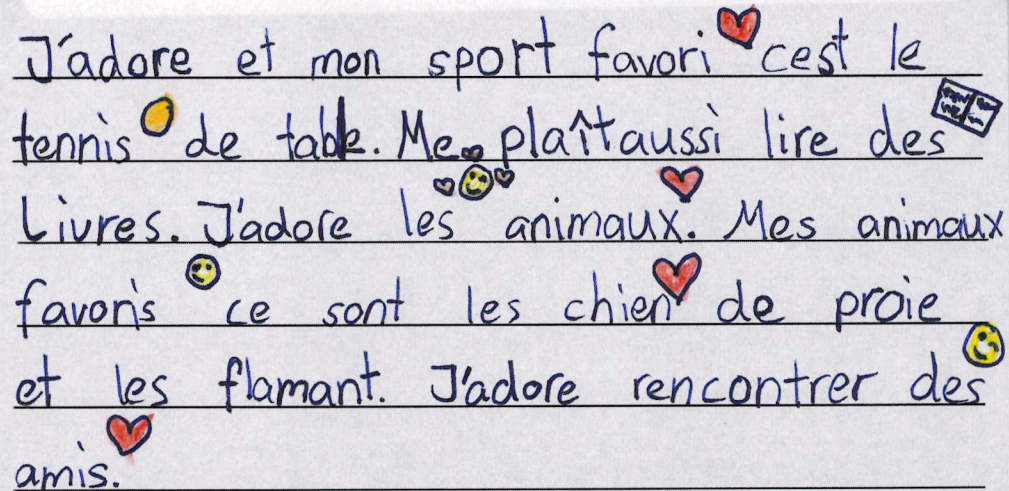 J'adore et mon sport favori cest le
tennis de table. Me plaît aussi lire des
Livres. J'adore les animaux. Mes animaux
favoris ce sont les chien de proie
et les flamant. J'adore rencontrer des
amis.